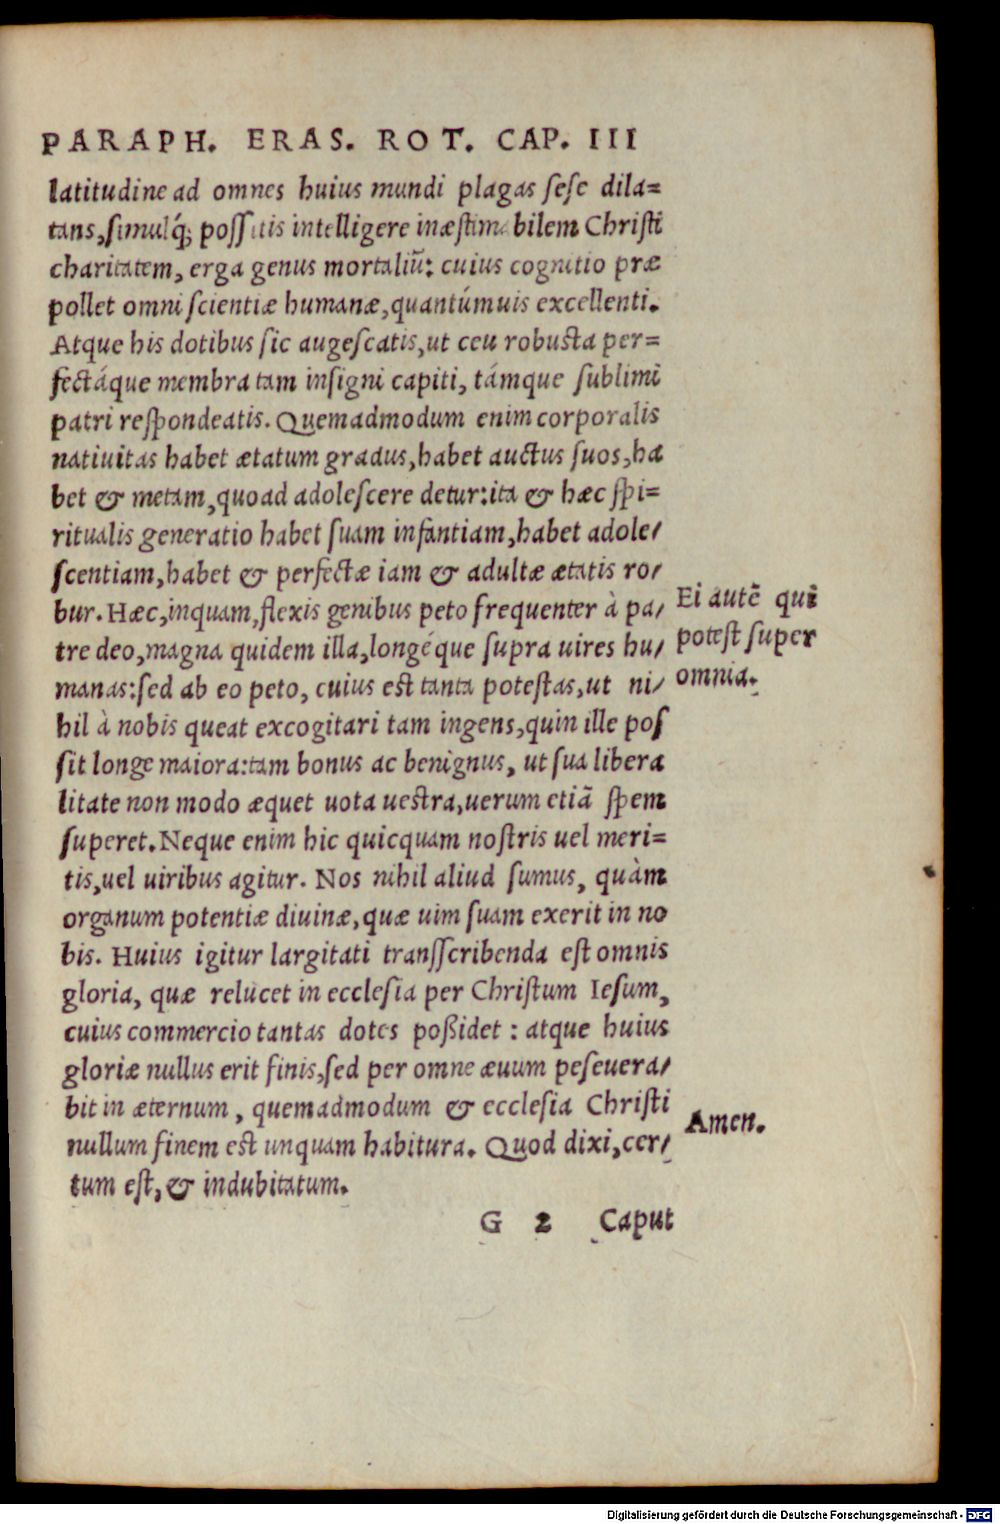 PARAPH. ERAS. ROT. CAP. III
latitudine ad omnes huius mundi plagas sese dila=
tans, simulq́; possitis intelligere inæstimabilem Christi
charitatem, erga genus mortaliũ: cuius cognitio præ
pollet omni scientiæ humanæ, quantúmuis excellenti.
Atque his dotibus sic augescatis, ut ceu robusta per=
fectáque membra tam insigni capiti, támque sublimi
patri respondeatis. Quemadmodum enim corporalis
natiuitas habet ætatum gradus, habet auctus suos, ha
bet & metam, quo ad adolescere detur: ita & hæc spi=
ritualis generatio habet suam infantiam, habet adole/
scentiam, habet & perfectæ iam & adultæ ætatis ro/
bur. Hæc, inquam, flexis genibus peto frequenter à pa/
tre deo, magna quidem illa, longéque supra uires hu/
manas: sed ab eo peto, cuius est tanta potestas, ut ni/
hil à nobis queat excogitari tam ingens, quin ille pos
sit longe maiora: tam bonus ac benignus, ut sua libera
litate non modo æquet uota uestra, uerum etiã spem
superet. Neque enim hic quicquam nostris uel meri=
tis, uel uiribus agitur. Nos nihil aliud sumus, quàm
organum potentiæ diuinæ, quæ uim suam exerit in no
bis. Huius igitur largitati transscribenda est omnis
gloria, quæ relucet in ecclesia per Christum Iesum,
cuius commercio tantas dotes poßidet : atque huius
gloriæ nullus erit finis, sed per omne æuum peseuera/
bit in æternum, quemadmodum & ecclesia Christi
nullum finem est unquam habitura. Quod dixi, cer/
tum est, & indubitatum.
Ei autẽ qui
potest super
omnia.
Amen.
G 2 Caput
Digitalisierung gefördert durch die Deutsche Forschungsgemeinschaft - DFG